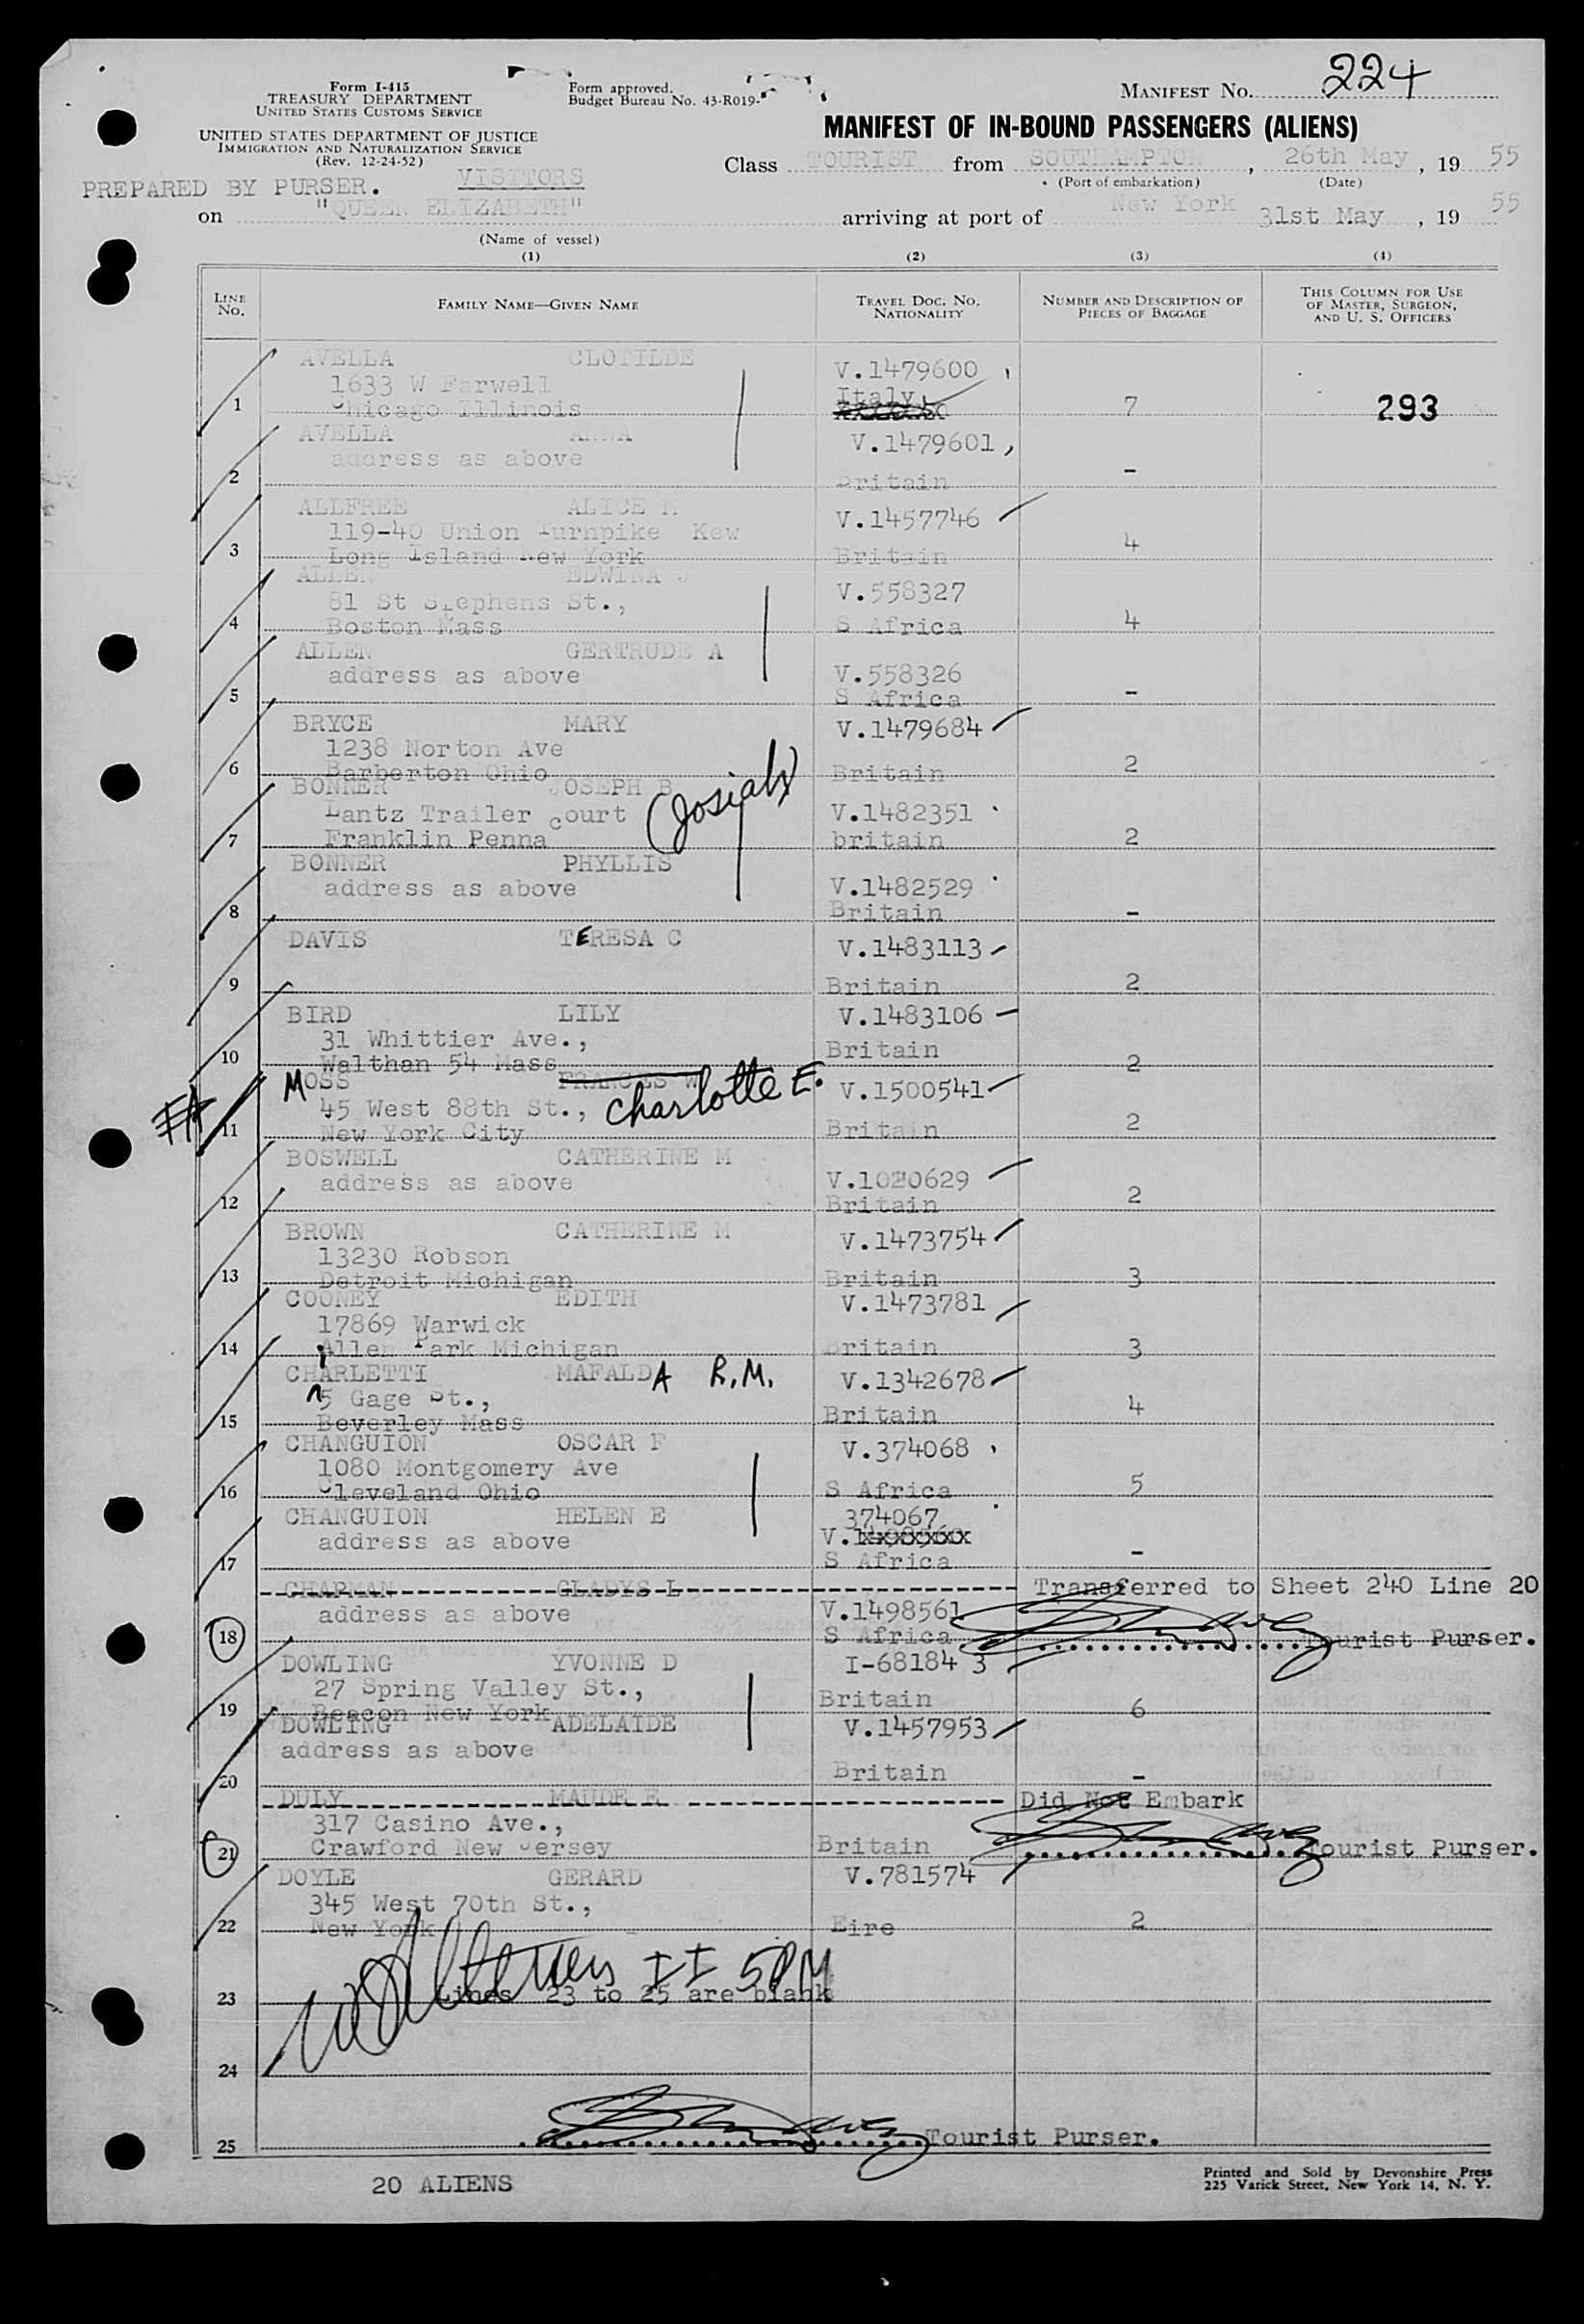 Form I-415
TREASURY DEPARTMENT
UNITED STATES CUSTOMS SERVICE
UNITED STATES DEPARTMENT OF JUSTICE
IMMIGRATION AND NATURALIZATION SERVICE
(Rev. 12-24-52)
Form approved.
Budget Bureau No. 43-R019-
MANIFEST NO. 224
MANIFEST OF IN-BOUND PASSENGERS (ALIENS)
Class TOURIST from SOUTHAMPTON, 26th May, 19 55
(Port of embarkation) (Date)
PREPARED BY PURSER. VISITORS
on "QUEEN ELIZABETH" arriving at port of New York 31st May, 19 55
(Name of vessel)
(1) (2) (3) (4)
LINE NO. FAMILY NAME—GIVEN NAME TRAVEL DOC. NO. NATIONALITY NUMBER AND DESCRIPTION OF PIECES OF BAGGAGE THIS COLUMN FOR USE OF MASTER, SURGEON, AND U. S. OFFICERS
AVELLA CLOTILDE V.1479600
1633 W Farwell Italy
1 Chicago Illinois 7 293
AVELLA ANNA V.1479601
address as above
2 Britain -
ALLFREE ALICE M V.1457746
119-40 Union Turnpike Kew
3 Long Island New York Britain 4
ALLEN EDWINA J V.558327
81 St Stephens St.,
4 Boston Mass S Africa 4
ALLEN GERTRUDE A
address as above V.558326
5 S Africa -
BRYCE MARY V.1479684
1238 Norton Ave
6 Barberton Ohio Britain 2
BONNER JOSEPH B (Josiah)
Lantz Trailer court V.1482351
7 Franklin Penna britain 2
BONNER PHYLLIS
address as above V.1482529
8 Britain -
DAVIS TERESA C V.1483113
9 Britain 2
BIRD LILY V.1483106
31 Whittier Ave., Britain
10 Walthan 54 Mass 2
MOSS FRANCES W Charlotte E. V.1500541
45 West 88th St.,
11 New York City Britain 2
BOSWELL CATHERINE M
address as above V.1020629
12 Britain 2
BROWN CATHERINE M V.1473754
13230 Robson
13 Detroit Michigan Britain 3
COONEY EDITH V.1473781
17869 Warwick
14 Allen Park Michigan Britain 3
CHARLETTI MAFALDA R.M. V.1342678
5 Gage St.,
15 Beverley Mass Britain 4
CHANGUION OSCAR F V.374068
1080 Montgomery Ave
16 Cleveland Ohio S Africa 5
CHANGUION HELEN E 374067
address as above V.
17 S Africa -
CHAPMAN GLADYS L Transferred to Sheet 240 Line 20
address as above V.1498561
18 S Africa Tourist Purser.
DOWLING YVONNE D I-68184 3
27 Spring Valley St.,
19 Beacon New York Britain 6
DOWLING ADELAIDE V.1457953
address as above
20 Britain -
DULY MAUDE E Did Not Embark
317 Casino Ave.,
21 Crawford New Jersey Britain Tourist Purser.
DOYLE GERARD V.781574
345 West 70th St.,
22 New York Eire 2
II 5PM
23 Lines 23 to 25 are blank
24
25 Tourist Purser.
20 ALIENS
Printed and Sold by Devonshire Press
225 Varick Street, New York 14, N. Y.